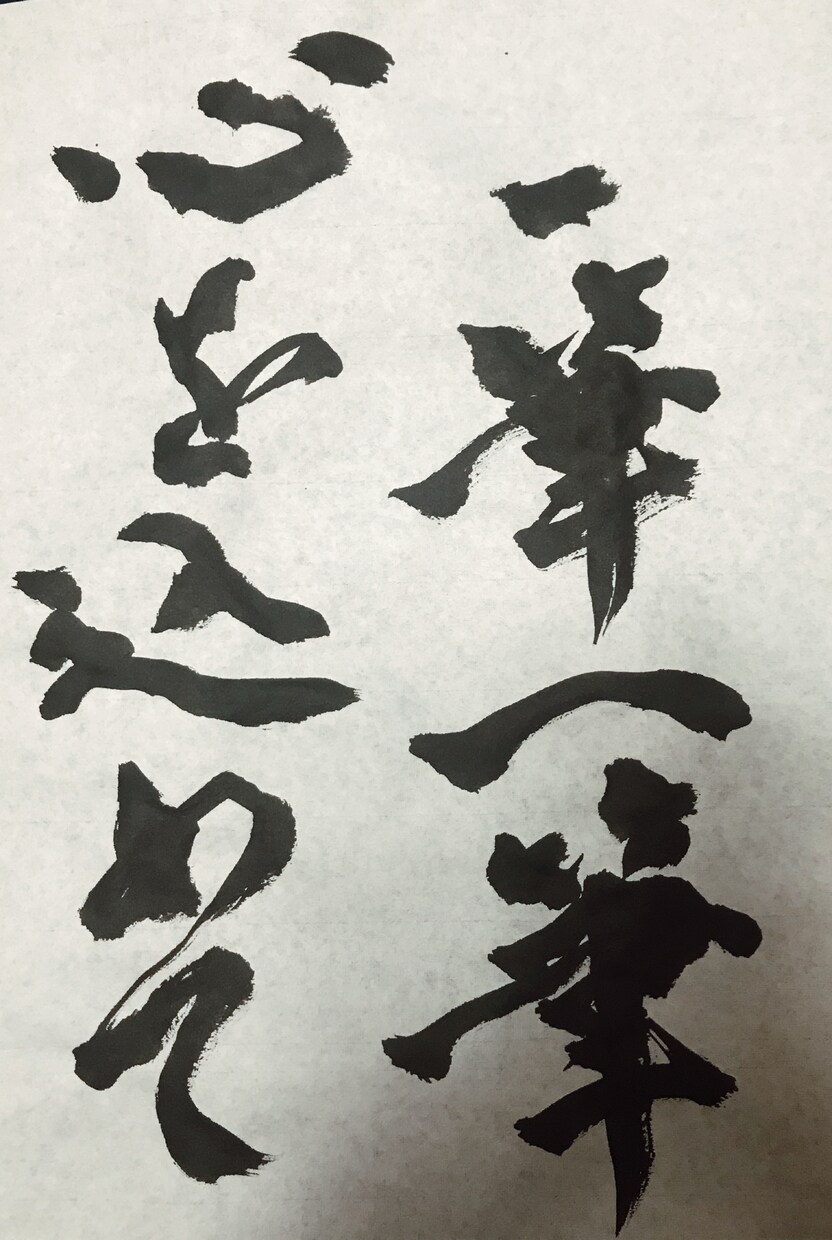 一筆一筆
心を込めて